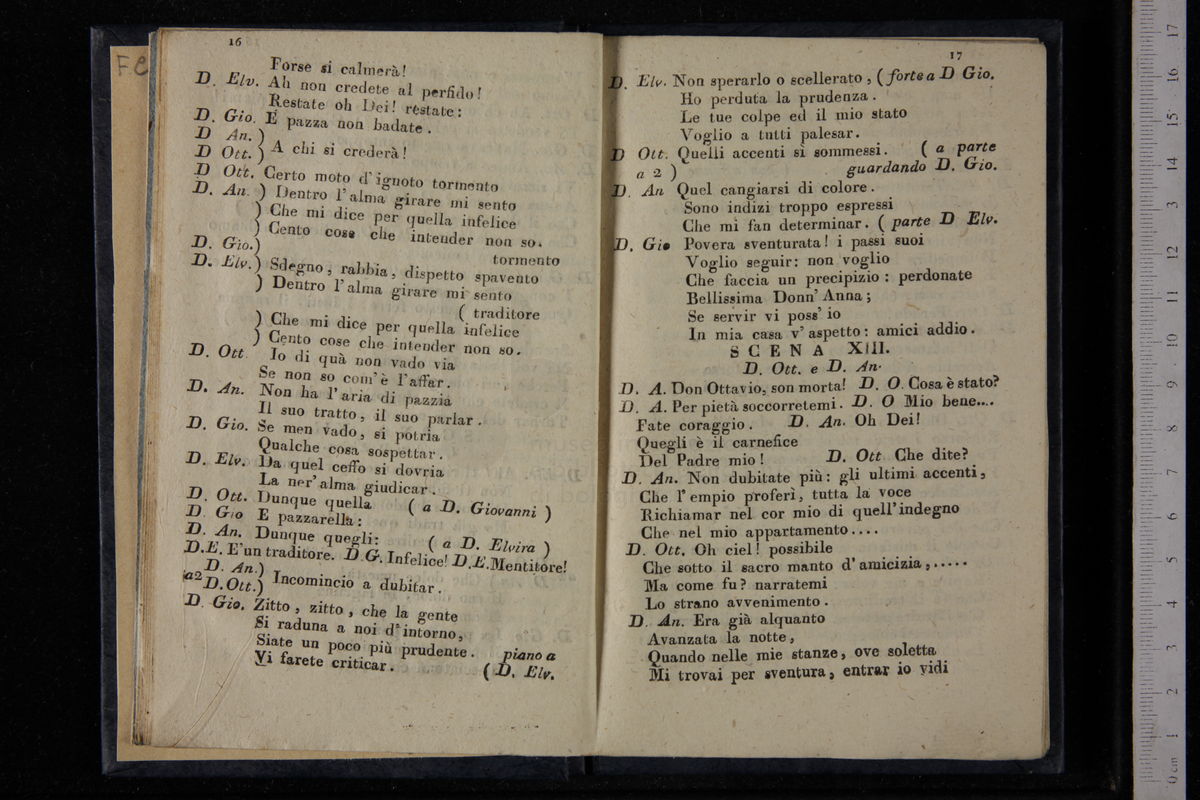 16
Forse si calmerà!
D. Elv. Ah non credete al perfido!
Restate oh Dei! restate:
D. Gio. E pazza non badate.
D An. )
D Ott. ) A chi si crederà!
D Ott. Certo moto d'ignoto tormento
D. An. ) Dentro l'alma girare mi sento
) Che mi dice per quella infelice
) Cento cose che intender non so.
D. Gio.) tormento
D. Elv.) Sdegno, rabbia, dispetto spavento
) Dentro l'alma girare mi sento
( traditore
) Che mi dice per quella infelice
) Cento cose che intender non so.
D. Ott. Io di quà non vado via
Se non so com'è l'affar.
D. An. Non ha l'aria di pazzia
Il suo tratto, il suo parlar.
D. Gio. Se men vado, si potria
Qualche cosa sospettar.
D. Elv. Da quel ceffo si dovria
La ner'alma giudicar.
D. Ott. Dunque quella ( a D. Giovanni )
D. Gio E pazzarella:
D. An. Dunque quegli: ( a D. Elvira )
D.E. E'un traditore. D.G. Infelice! D.E. Mentitore!
D. An.)
a2 D. Ott.) Incomincio a dubitar.
D. Gio. Zitto, zitto, che la gente
Si raduna a noi d'intorno,
Siate un poco più prudente. piano a
Vi farete criticar. ( D. Elv.
17
D. Elv. Non sperarlo o scellerato, ( forte a D Gio.
Ho perduta la prudenza.
Le tue colpe ed il mio stato
Voglio a tutti palesar.
D Ott. Quelli accenti sì sommessi. ( a parte
a 2 ) guardando D. Gio.
D. An Quel cangiarsi di colore.
Sono indizi troppo espressi
Che mi fan determinar. ( parte D Elv.
D. Gio Povera sventurata! i passi suoi
Voglio seguir: non voglio
Che faccia un precipizio: perdonate
Bellissima Donn' Anna;
Se servir vi poss' io
In mia casa v' aspetto: amici addio.
SCENA XIII.
D. Ott. e D. An.
D. A. Don Ottavio, son morta! D. O. Cosa è stato?
D. A. Per pietà soccorretemi. D. O Mio bene....
Fate coraggio. D. An. Oh Dei!
Quegli è il carnefice
Del Padre mio! D. Ott Che dite?
D. An. Non dubitate più: gli ultimi accenti,
Che l'empio proferì, tutta la voce
Richiamar nel cor mio di quell'indegno
Che nel mio appartamento....
D. Ott. Oh ciel! possibile
Che sotto il sacro manto d'amicizia,.....
Ma come fu? narratemi
Lo strano avvenimento.
D. An. Era già alquanto
Avanzata la notte,
Quando nelle mie stanze, ove soletta
Mi trovai per sventura, entrar io vidi